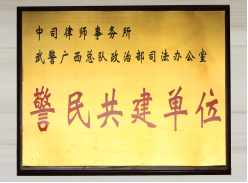 中司律师事务所
武警广西总队政治部司法办公室
警民共建单位